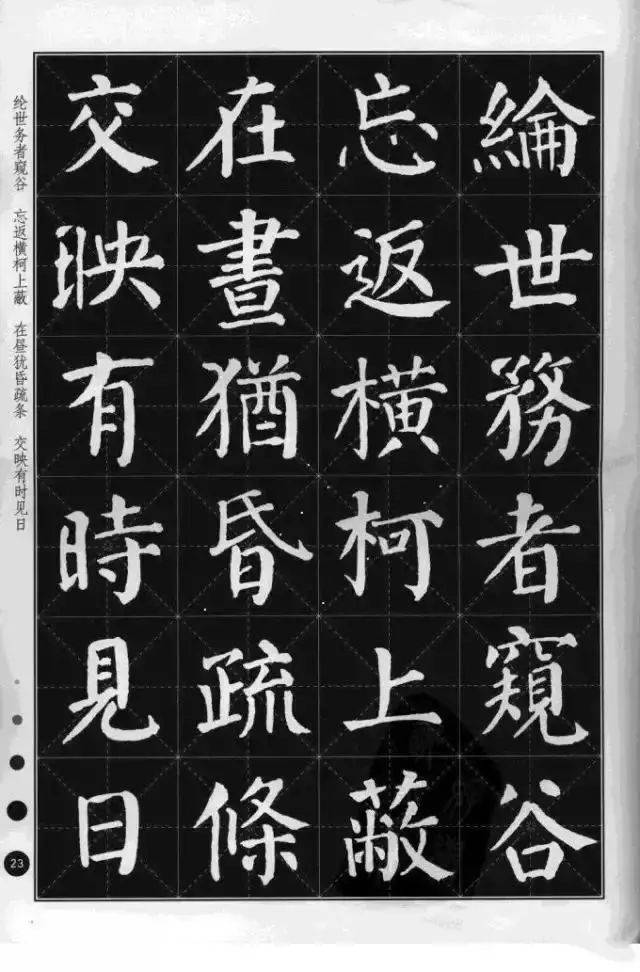 綸世務者窺谷
忘返橫柯上蔽
在晝猶昏疏條
交映有時見日
纶世务者窥谷 忘返横柯上蔽 在昼犹昏疏条 交映有时见日
23